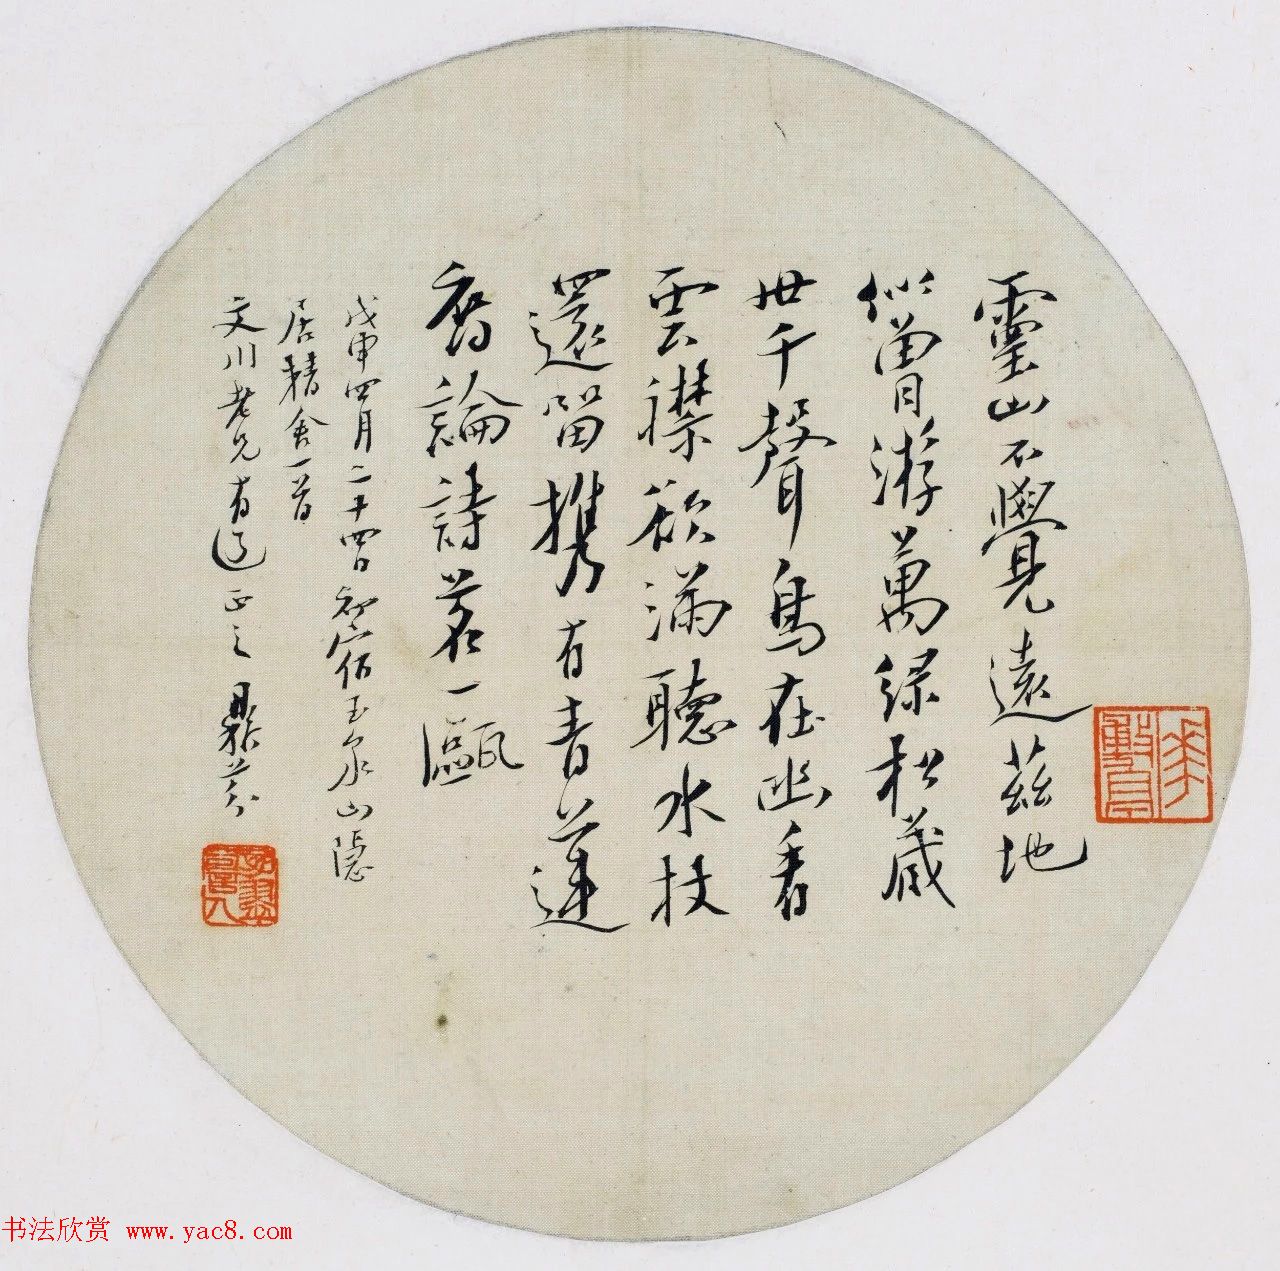 靈山不覺遠茲地
似曾游萬綠松藏
世千聲鳥在幽看
雲襟欲滿聽水杖
還留攜有青蓮
舊論詩茗一甌
戊申四月二十四日初宿玉泉山隱
居精舍一首
文川老兄有道正之 鼎芬
书法欣赏 www.yac8.com